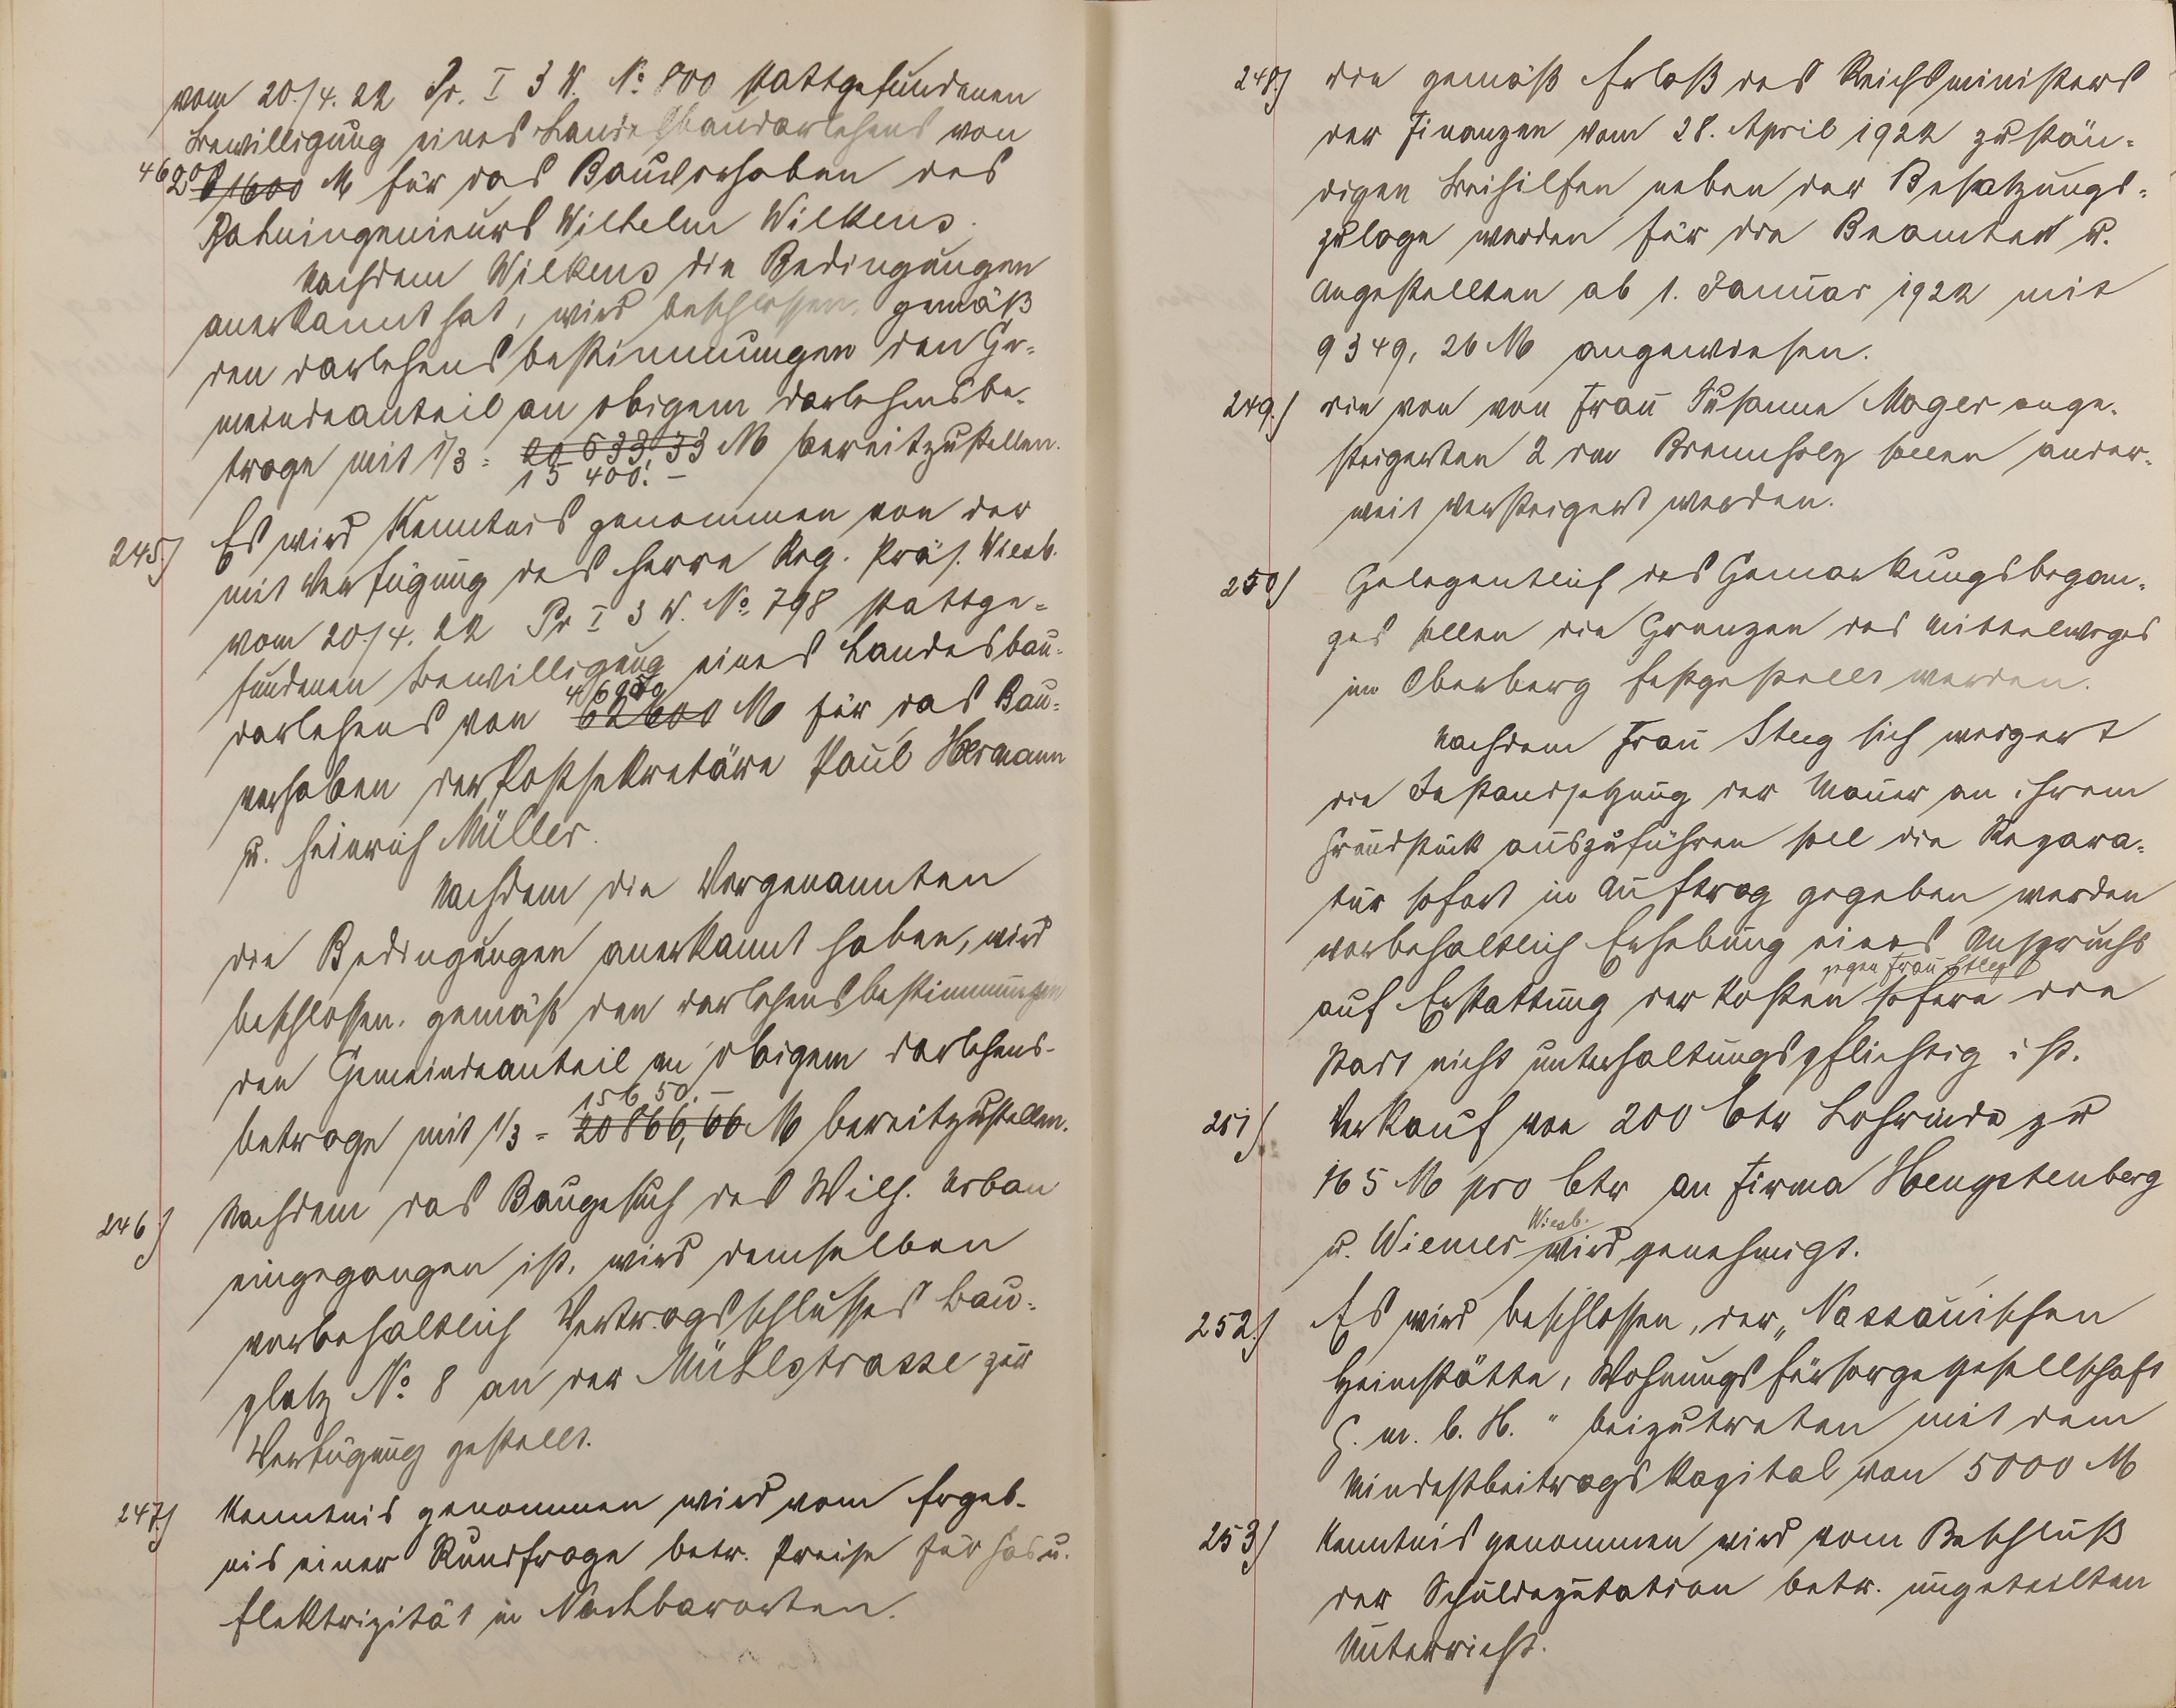 vom 20./4. 22 Pr. I 3 W. No 800 stattgefundenen
Bewilligung eines Landesbaudarlehens von
46200 61600 M für das Bauvorhaben des
Bahningenieurs Wilhelm Wilkens.
Nachdem Wilkens die Bedingungen
anerkannt hat, wird beschlossen, gemäß
den Darlehensbestimmungen den Ge-
meindeanteil an obigem Darlehensbe-
trage mit 1/3 = 20 533,33 M bereitzustellen.
15 400.-
245.) Es wird Kenntnis genommen von der
mit Verfügung des Herrn Reg. Präs. Wiesb.
vom 20./4. 22 Pr I 3 W. No 798 stattge-
fundenen Bewilligung eines Landesbau-
46950
darlehens von 62600 M für das Bau-
vorhaben der Postsekretäre Paul Hermann
u. Heinrich Müller.
Nachdem die Vorgenannten
die Bedingungen anerkannt haben, wird
beschlossen, gemäß den Darlehensbestimmungen
den Gemeindeanteil an obigem Darlehens-
15650.-
betrage mit 1/3 = 20866,66 M bereitzustellen.
246.) Nachdem das Baugesuch des Wilh. Urban
eingegangen ist, wird demselben
vorbehaltlich Vertragsschlusses Bau-
platz No 8 an der Mühlstrasse zur
Verfügung gestellt.
247.) Kenntnis genommen wird vom Ergeb-
nis einer Rundfrage betr. Preise für Gas u.
Elektrizität in Nachbarorten.
248.) Die gemäß Erlaß des Reichsministers
der Finanzen vom 28. April 1922 zustän-
digen Beihilfen neben der Besatzungs-
zulage werden für die Beamten u.
Angestellten ab 1. Januar 1922 mit
9349,26 M angewiesen.
249.) Die von von Frau Susanne Mager ange-
steigerten 2 rm Brennholz sollen ander-
weit versteigert werden.
250.) Gelegentlich des Gemarkungsbegan-
ges sollen die Grenzen des Mittelweges
im Oberberg festgestellt werden.
Nachdem Frau Steeg sich weigert
die Instandsetzung der Mauer an ihrem
Grundstück auszuführen soll die Repara-
tur sofort in Auftrag gegeben werden
vorbehaltlich Erhebung eines Anspruchs
gegen Frau Steeg
auf Erstattung der Kosten sofern die
Stadt nicht unterhaltungspflichtig ist.
251.) Verkauf von 200 Ctr Lohrinde zu
165 M pro Ctr an Firma Hengstenberg
Wiesb.
u. Wiemer wird genehmigt.
252.) Es wird beschlossen, der „Nassauischen
Heimstätte, Wohnungsfürsorgegesellschaft
G. m. b. H." beizutreten mit dem
Mindestbeitragskapital von 5000 M
253.) Kenntnis genommen wird vom Beschluß
der Schuldeputation betr. ungeteilten
Unterricht.